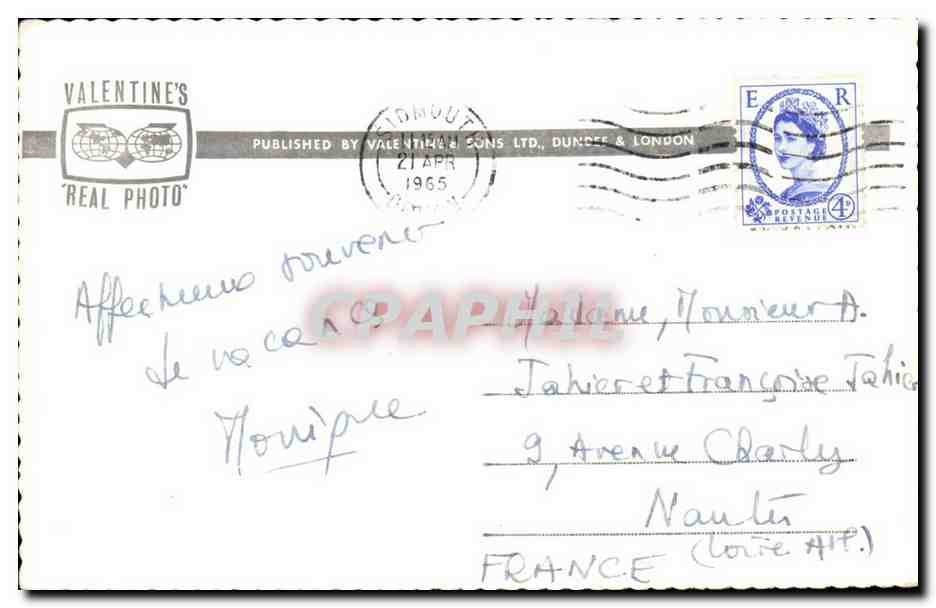 VALENTINE'S
"REAL PHOTO"
PUBLISHED BY VALENTINE & SONS LTD., DUNDEE & LONDON
SIDMOUTH
11-15 AM
21 APR
1965
DEVON
E R
POSTAGE
REVENUE
4D
CPAPHIL
Affectueux souvenir
de vacances
Monique
Madame, Monsieur A.
Tahier et Françoise Tahier
9, Avenue Charly
Nantes
(Loire Atl.)
FRANCE